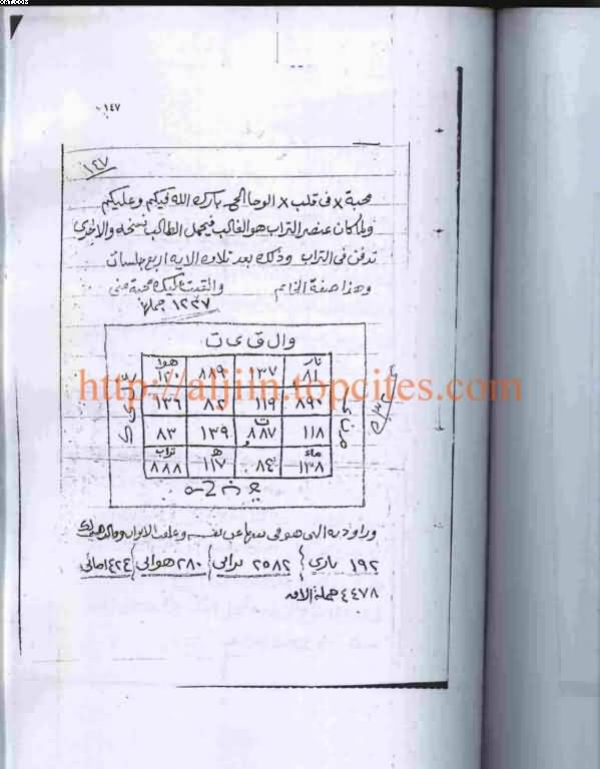 ١٤٧
١٤٧
محبة x فى قلب x الوحا الحـ بارك الله فيكم وعليكم
ولما كان عنصر التراب هو الغالب فيحمل الطالب نسخه والاخرى
تدفن فى التراب وذلك بعد تلاوة الايه اربع جلسات
وهذا صفة الخاتم والقيت عليك محبة منى
١٢٣٧ جملها
وال ق ى ت
نار ٨١ ١٣٧ ٨٨٩ هوا
٨٩٠ ١١٩ ٨٢ ١٣٦
١١٨ ٨٨٧ ١٣٩ ٨٣
ماء ١٣٨ ٨٤ ١١٧ تراب ٨٨٨
http://aljiin.topcites.com
وراودته التى هو فى بيتها عن نفسه وغلقت الابواب وقالت هيت لك
١٩٢ نارى ٢٥٨٢ ترابى ٢٨٠ هوائى ١٤٢٤ مائى
٤٤٧٨ جملة الايه